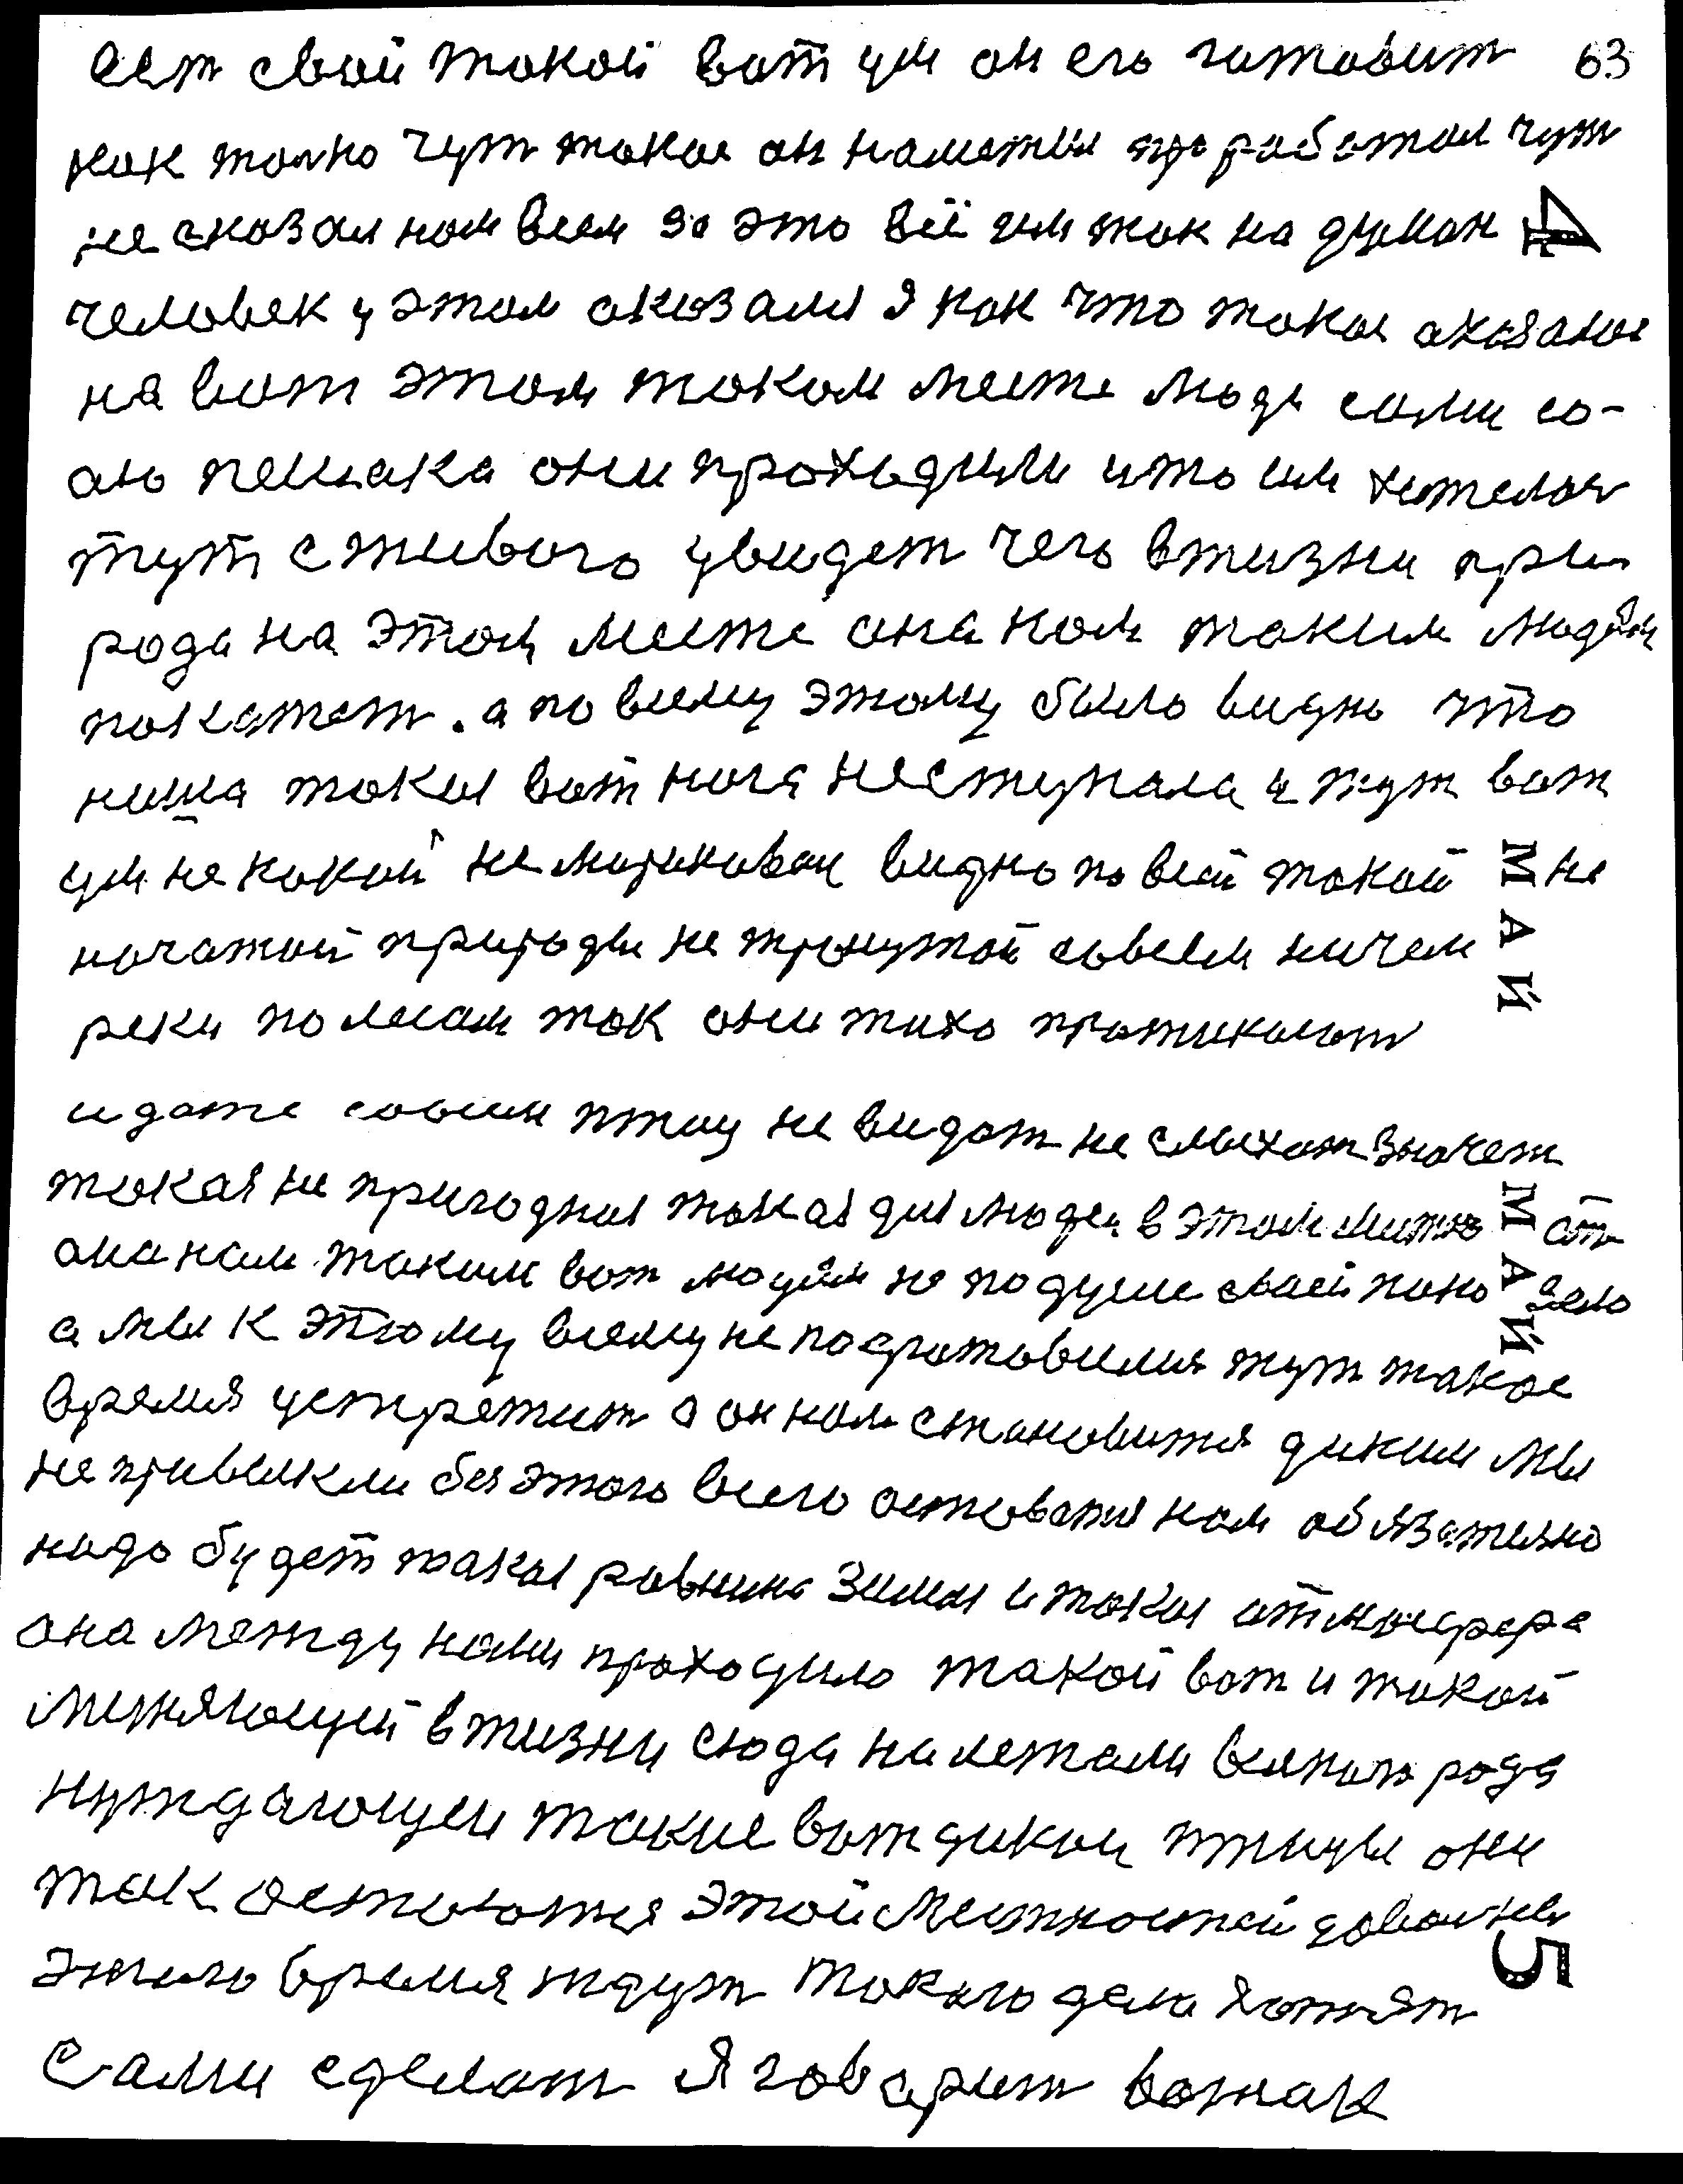 ест свой такой вот ум он его готовит 63
как толко чут такое он наметил проработал чут
не сказал нам всем за это всё им так надуман 4
человек у этом оказался я как что такое аказаное
на вот этом таком месте люди сами со-
аю пешака они проходили што им хателося
тут с живого увидет чего вжизни при
рода на этом месте она нам таким людям
покажет. а по всему этому было видно что
наша такая вот нога неступала и тут вот
ум не какой не мотивован видно по всей такой не
МАЙ
початой природы не тронутой совсем ничем
реки по лесам так они тихо протикают
и даже совсем птиц не видат не слыхат значет
такая не пригодная такая для людей в этом месте от
МАЙ
она нам таким вот людям не по душе своей пока зало
а мы к этому всему не подготовился тут такое
время устретит а он нам становится диким мы
не привыкли без этого всего оставатся нам обязателно
надо будет такая равнина земля и такая атмосфера
она между нами проходило такой вот и такой
меняющей вжизни сюда налетали всякого рода
нуждающеи такие вот дикои птицы они
так остаются этой местностей доволны
5
этого время ждут такого дела хотят
сами сделат Я говорит вожак